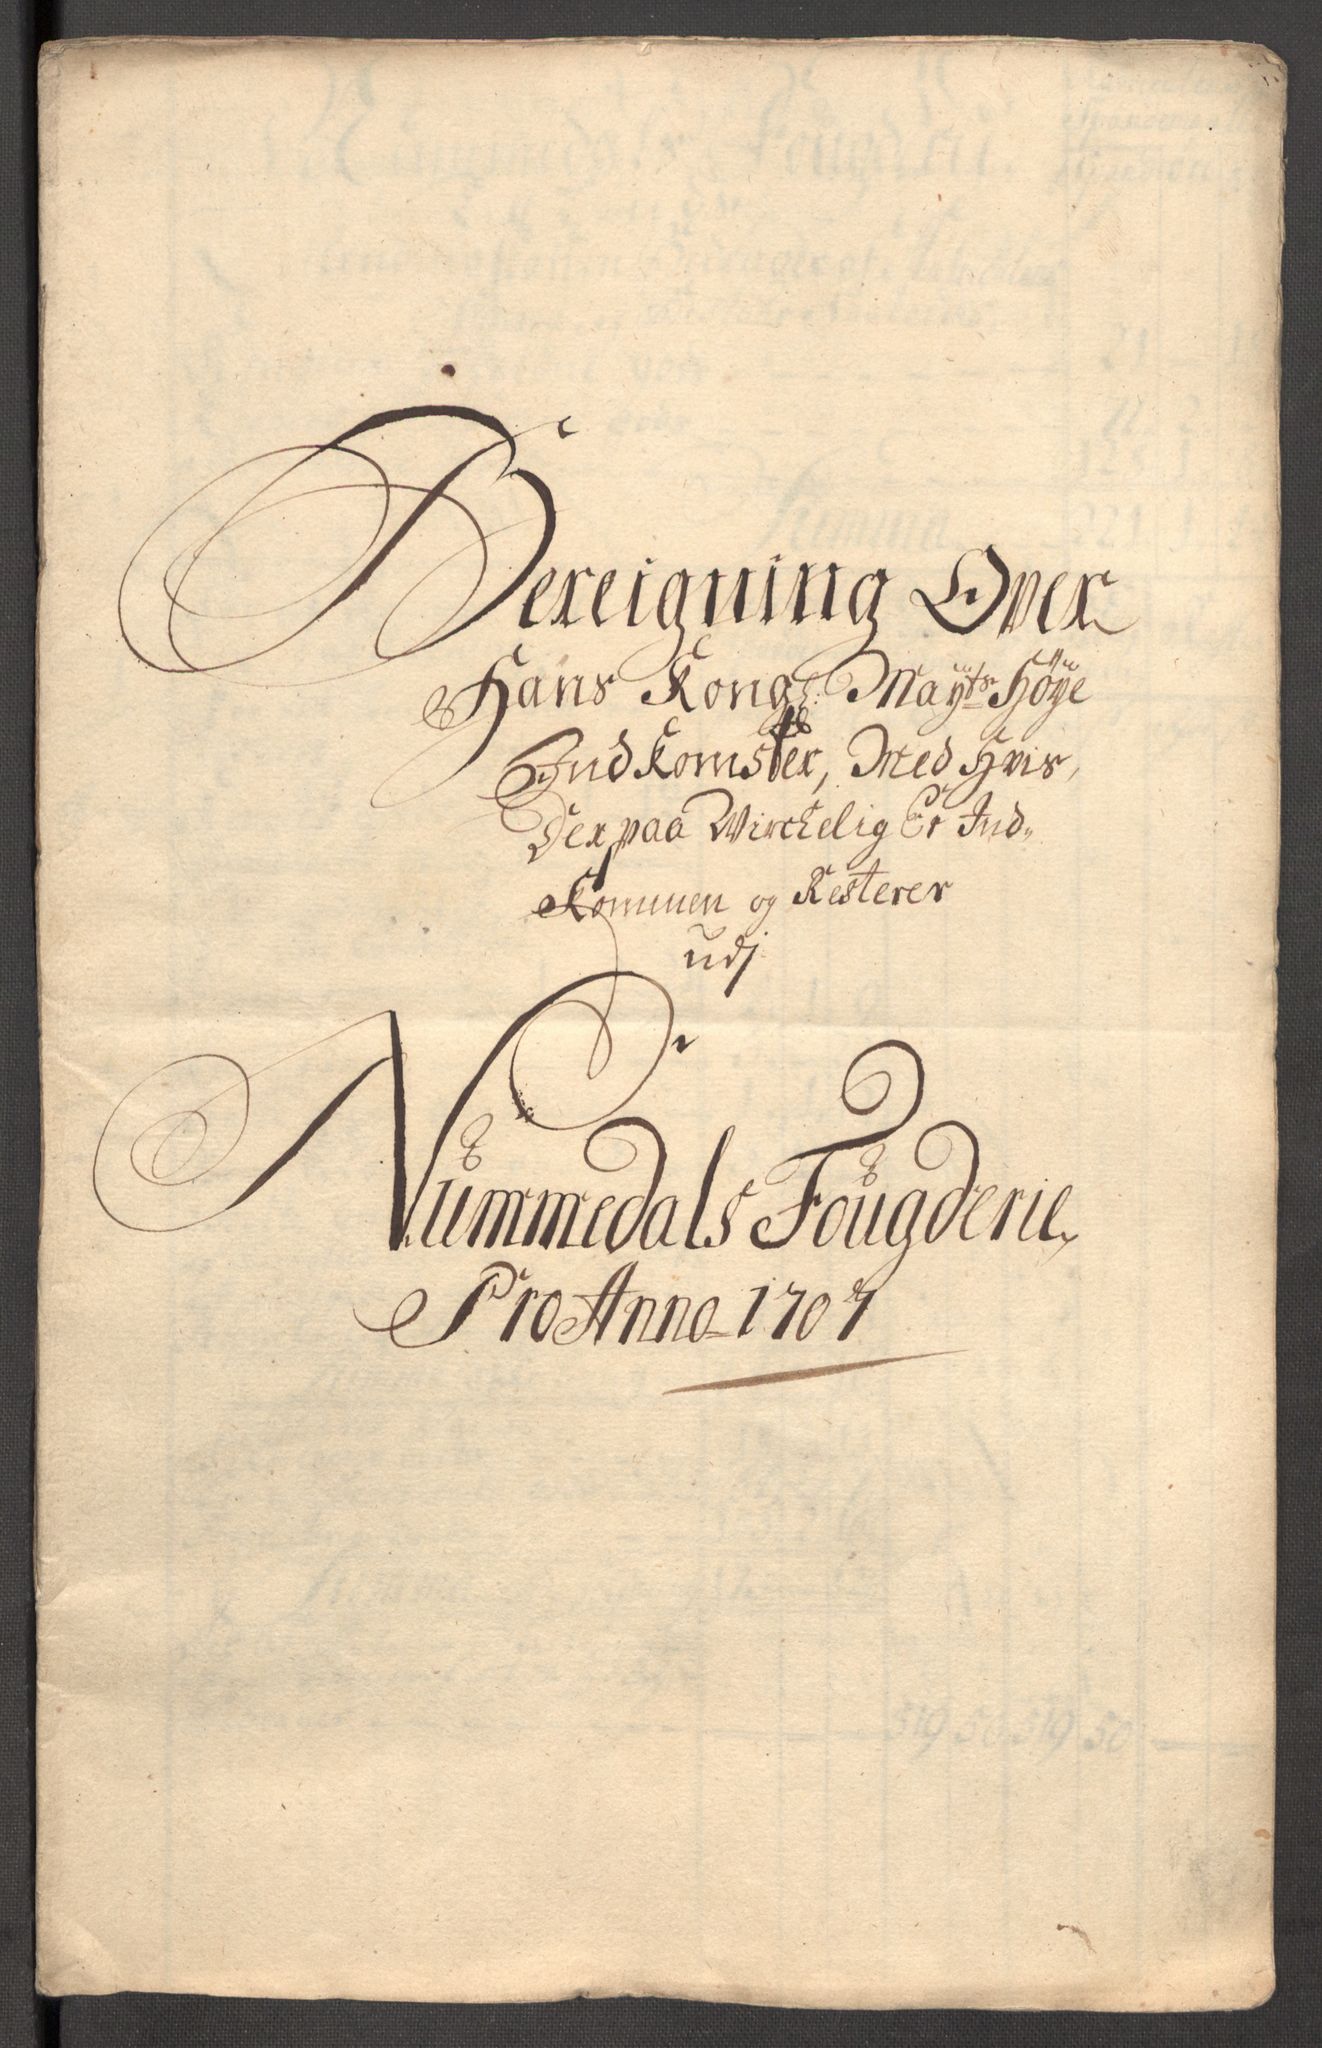 Bereigning Over
Hans Kongl: Mayts Höye
Indkomster, Med Hvis,
Derpaa Virckelig Er Ind-
Kommen og Resterer
udj
Nummedals Fougderie
Pro Anno 1707